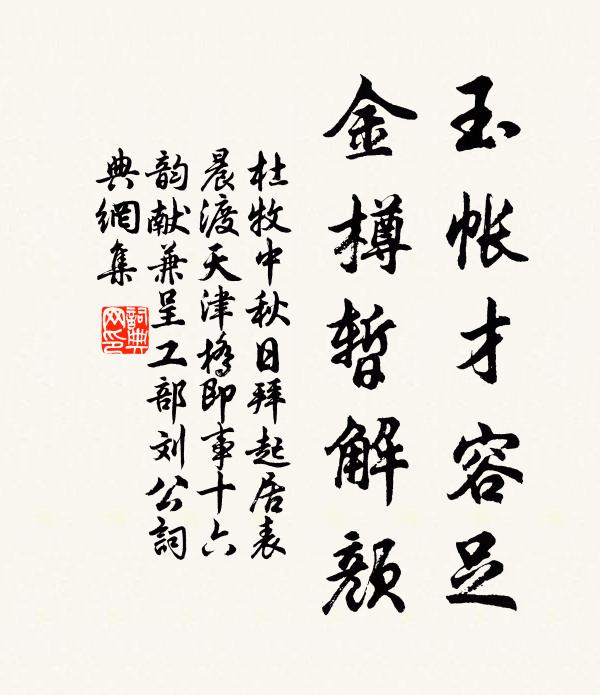 玉帐才容足
金樽暫解颜
杜牧中秋日拜起居表
晨渡天津橋即事十六
韵献兼呈工部刘公詞
典網集
詞典网印